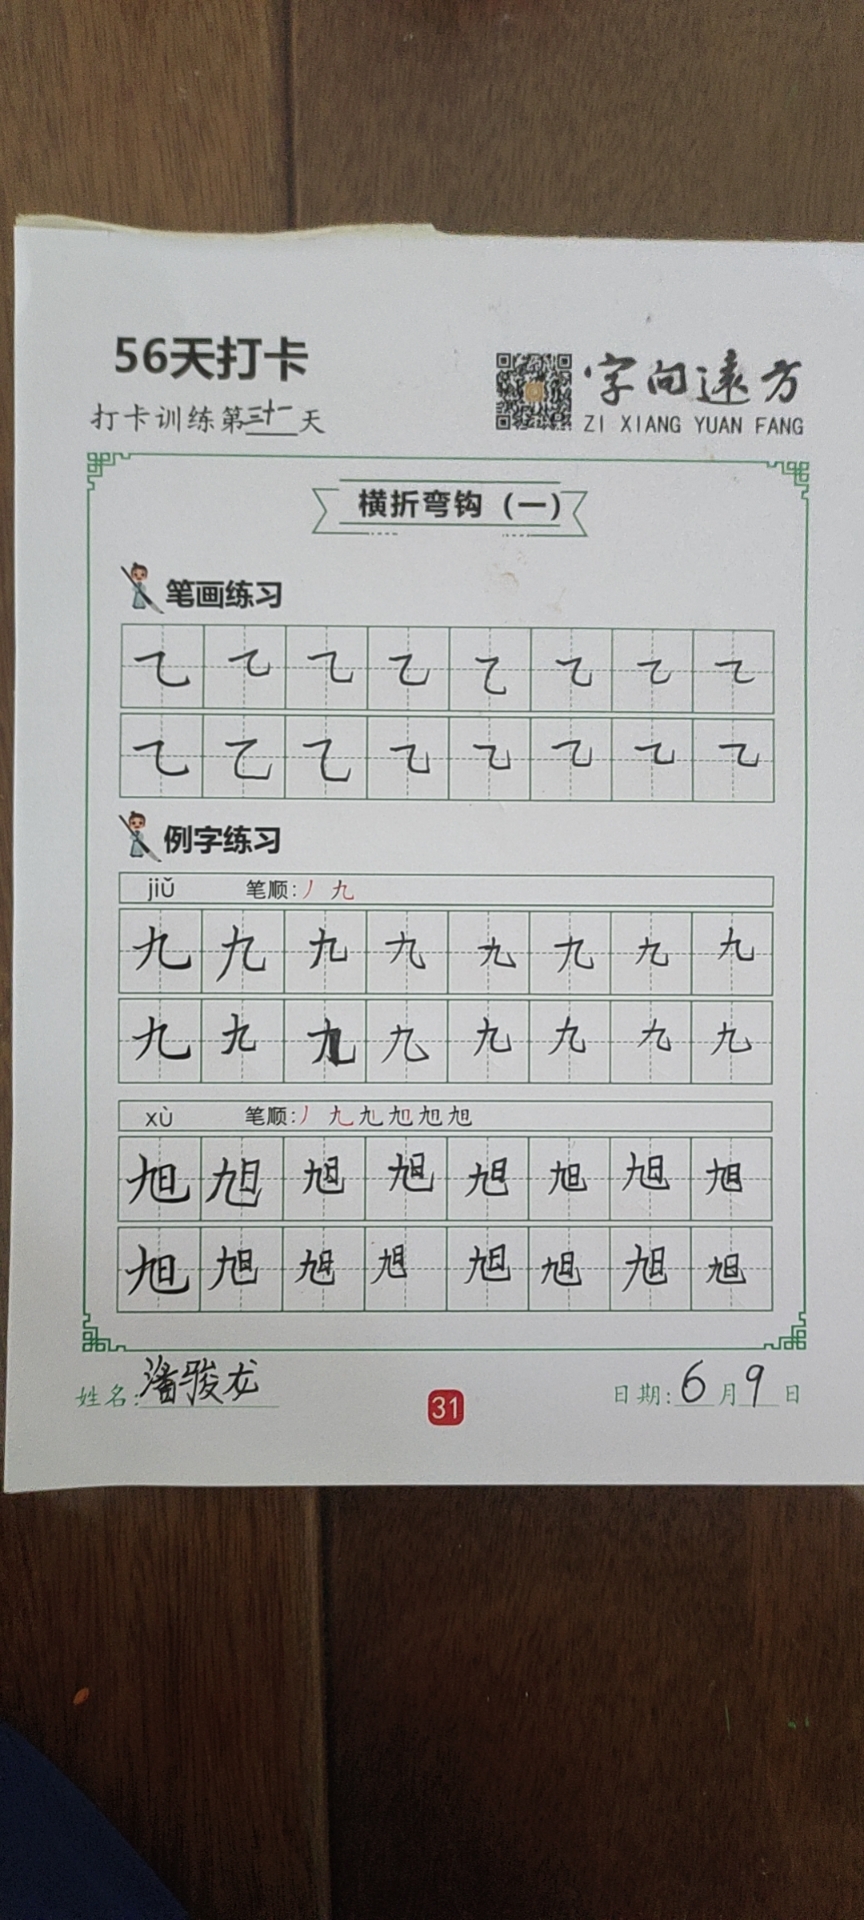 56天打卡
打卡训练第三十一天
字向远方
ZI XIANG YUAN FANG
横折弯钩（一）
笔画练习
乙乙乙乙乙乙乙乙
乙乙乙乙乙乙乙乙
例字练习
jiǔ 笔顺:丿 九
九九九九九九九九
九九九九九九九九
xù 笔顺:丿 九 旭 旭 旭 旭
旭旭旭旭旭旭旭旭
旭旭旭旭旭旭旭旭
姓名:潘骏龙
31
日期:6月9日